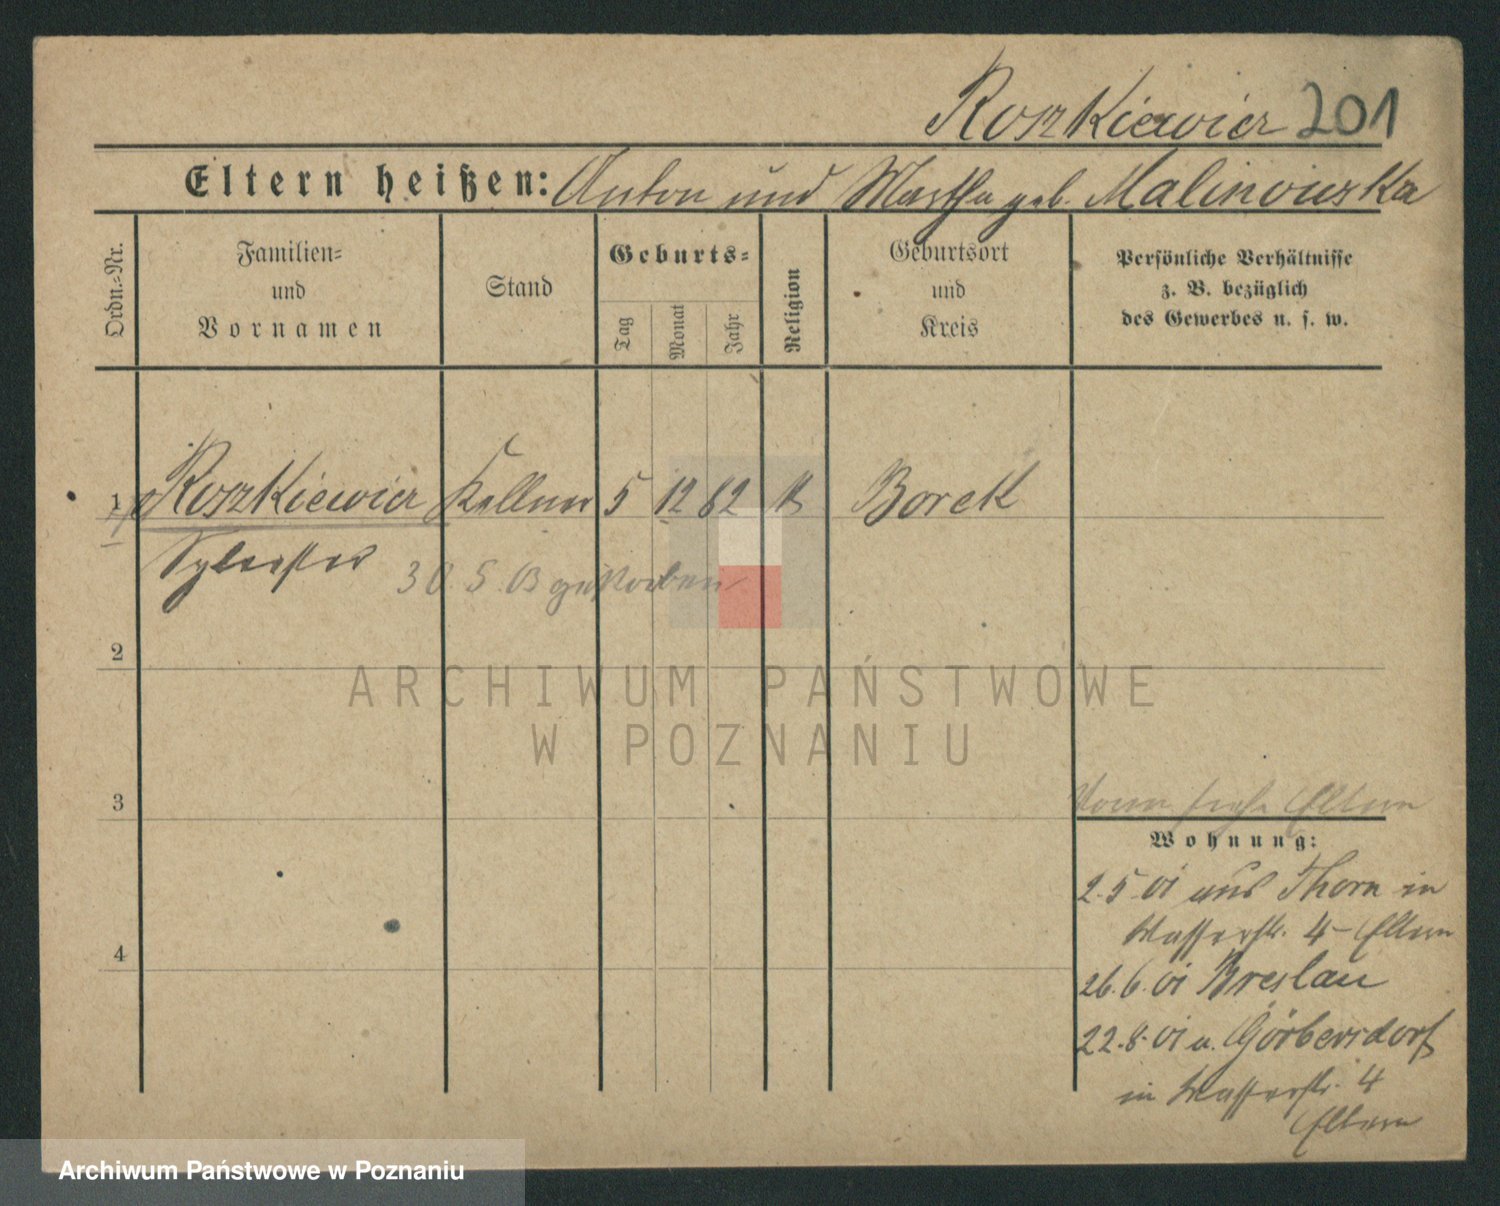 Roszkiewicz 201
Eltern heißen: Anton und Martha geb. Malinowska
Ordn.=Nr.
Familien=
und
Vornamen
Stand
Geburts=
Tag
Monat
Jahr
Religion
Geburtsort
und
Kreis
Persönliche Verhältnisse
z. B. bezüglich
des Gewerbes u. s. w.
1 Roszkiewicz Kellner 5 12 82 K Borek
Sylvester
30. 5. 03 gestorben
2
3
4
siehe Eltern
Wohnung:
2.5.01 aus Thorn in
Wasserstr. 4 - Eltern
26.6.01 Breslau
22.8.01 a. Görbersdorf
in Wasserstr. 4
Eltern
ARCHIWUM PAŃSTWOWE
W POZNANIU
Archiwum Państwowe w Poznaniu